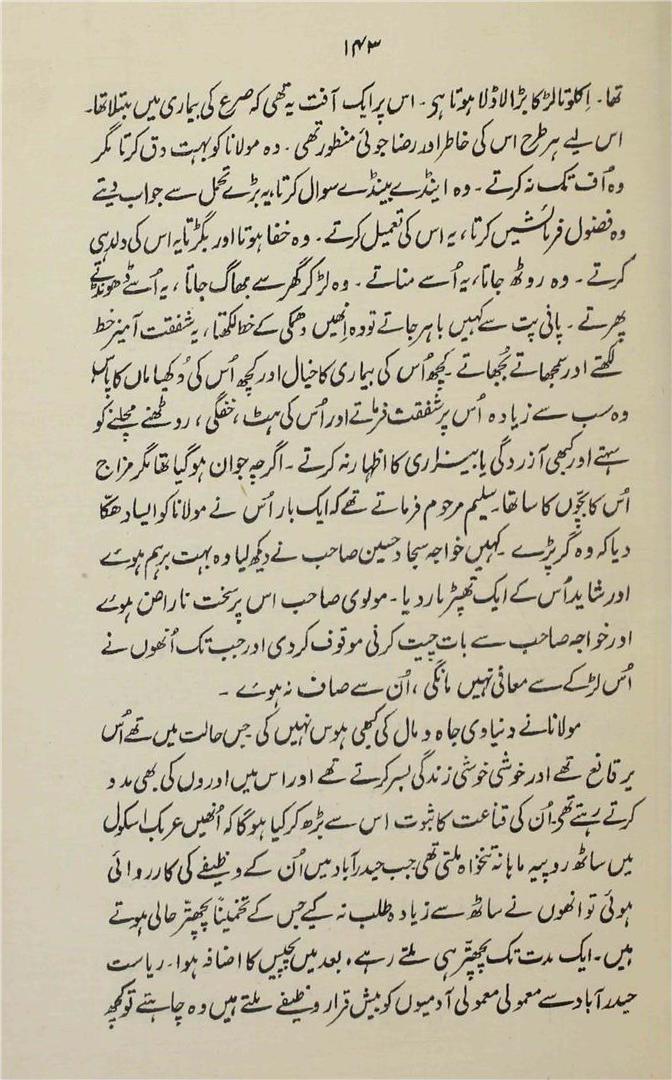 ۱۴۳
تھا۔ اِکلوتا لڑکا بڑا لاڈلا ہوتا ہی۔ اس پر ایک آفت یہ تھی کہ صرع کی بیماری میں مبتلا تھا۔
اس لیے ہر طرح اس کی خاطر اور رضا جوئی منظور تھی۔ وہ مولانا کو بہت دق کرتا مگر
وہ اُف تک نہ کرتے۔ وہ اینڈے بینڈے سوال کرتا، یہ بڑے تحمل سے جواب دیتے
وہ فضول فرمائشیں کرتا، یہ اس کی تعمیل کرتے۔ وہ خفا ہوتا اور بگڑتا یہ اس کی دلدہی
کرتے۔ وہ روٹھ جاتا، یہ اُسے مناتے۔ وہ لڑ کر گھر سے بھاگ جاتا، یہ اُسے ڈھونڈتے
پھرتے۔ پانی پت سے کہیں باہر جاتے تو وہ اِنھیں دھمکی کے خط لکھتا، یہ شفقت آمیز خط
لکھتے اور سمجھاتے بُجھاتے کچھ اُس کی بیماری کا خیال اور کچھ اُس کی دُکھیا ماں کا پاس
وہ سب سے زیادہ اُس پر شفقت فرماتے اور اُس کی ہٹ، خفگی، روٹھنے مچلنے کو
سہتے اور کبھی آزردگی یا بیزاری کا اظہار نہ کرتے۔ اگرچہ جوان ہو گیا تھا مگر مزاج
اُس کا بچّوں کا سا تھا۔ سلیم مرحوم فرماتے تھے کہ ایک بار اُس نے مولانا کو ایسا دھکّا
دیا کہ وہ گر پڑے۔ کہیں خواجہ سجاد حسین صاحب نے دیکھ لیا وہ بہت برہم ہوئے
اور شاید اُس کے ایک تھپڑ مار دیا۔ مولوی صاحب اس پر سخت ناراض ہوئے
اور خواجہ صاحب سے بات چیت کرنی موقوف کر دی اور جب تک اُنھوں نے
اُس لڑکے سے معافی نہیں مانگی، اُن سے صاف نہ ہوئے۔
مولانا نے دنیاوی جاہ و مال کی کبھی ہوس نہیں کی جس حالت میں تھے اُس
پر قانع تھے اور خوشی خوشی زندگی بسر کرتے تھے اور اس میں اوروں کی بھی مدد
کرتے رہتے تھی۔ اُن کی قناعت کا ثبوت اس سے بڑھ کر کیا ہوگا کہ اُنھیں عربک اسکول
میں ساٹھ روپیہ ماہانہ تنخواہ ملتی تھی جب حیدرآباد میں اُن کے وظیفے کی کارروائی
ہوئی تو انھوں نے ساٹھ سے زیادہ طلب نہ کیے جس کے تخمیناً پچھتّر حالی ہوتے
ہیں۔ ایک مدت تک پچھتّر ہی ملتے رہے، بعد میں پچیس کا اضافہ ہوا۔ ریاست
حیدرآباد سے معمولی معمولی آدمیوں کو بیش قرار وظیفے ملتے ہیں وہ چاہتے تو کچھ